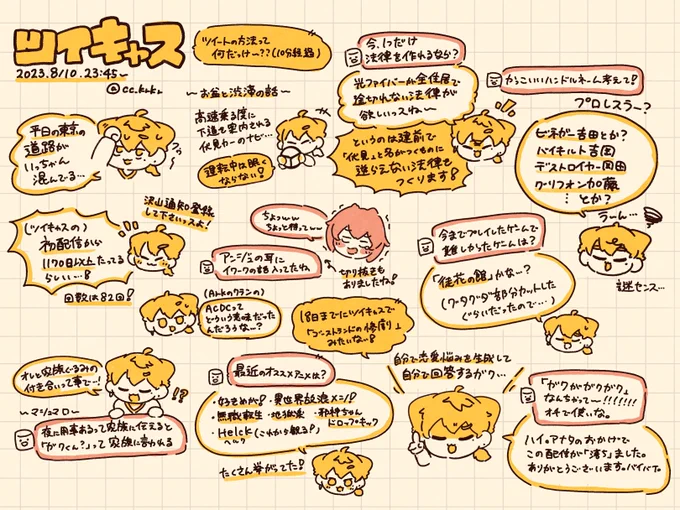 ツイキャス
2023.8/10.23:45~
@cc.kuku
ツイートの方法って
何だっけ~??(10分経過)
今、1つだけ
法律を作れるなら?
光ファイバーが全住居で
途切れない法律が
欲しいっスね~
というのは建前で
「伏見」と名がつくものに
逆らえない法律を
つくります!
かっこいいハンドルネーム考えて!
プロレスラー?
ビネガー吉田とか?
バイキルト吉岡
デストロイヤー岡田
グリフォン加藤
…とか?
うーん…
謎センス…
~お盆と渋滞の話~
平日の東京の
道路が
いっちゃん
混んでる…
高速乗る度に
下道を案内される
伏見カーのナビ…
運転中は眠く
ならない!
沢山通知登録
して下さいっスよ!
(ツイキャスの)
初配信から
1170日以上たってる
らしい…!
回数は82回!
ちょっww
ちょっと待ってww
アンジュの耳に
イワークの話入ってたね
切り抜きも
ありましたね!
(Arkのクランの)
ACDCって
どういう意味だった
んだろうな~?
18日までにツイキャスで
「ゴーストランドの修復」
みたいな~!
今までプレイしたゲームで
難しかったゲームは?
「徒花の館」かな~?
(グダグダ部分カットした
ぐらいだったので…)
オレと家族ぐるみの
付き合いって事で…!
!?
~マシュマロ~
夜に用事あるって家族に伝えると
「がっくん?」って家族に言われる
最近のオススメアニメは?
・好きめが!・異世界放浪メシ!
・無職転生・地獄楽・邪神ちゃん
ドロップキック
・Helck(これから観る!)
ヘルク
たくさん挙がってた!
自分で恋愛悩みを生成して
自分で回答するガク…
「ガクがガクガク」
なんちゃって~!!!!!!!
オチで使いな。
ハイ。アナタのおかげで
この配信が「落ち」ました。
ありがとうございます。バイバイ。